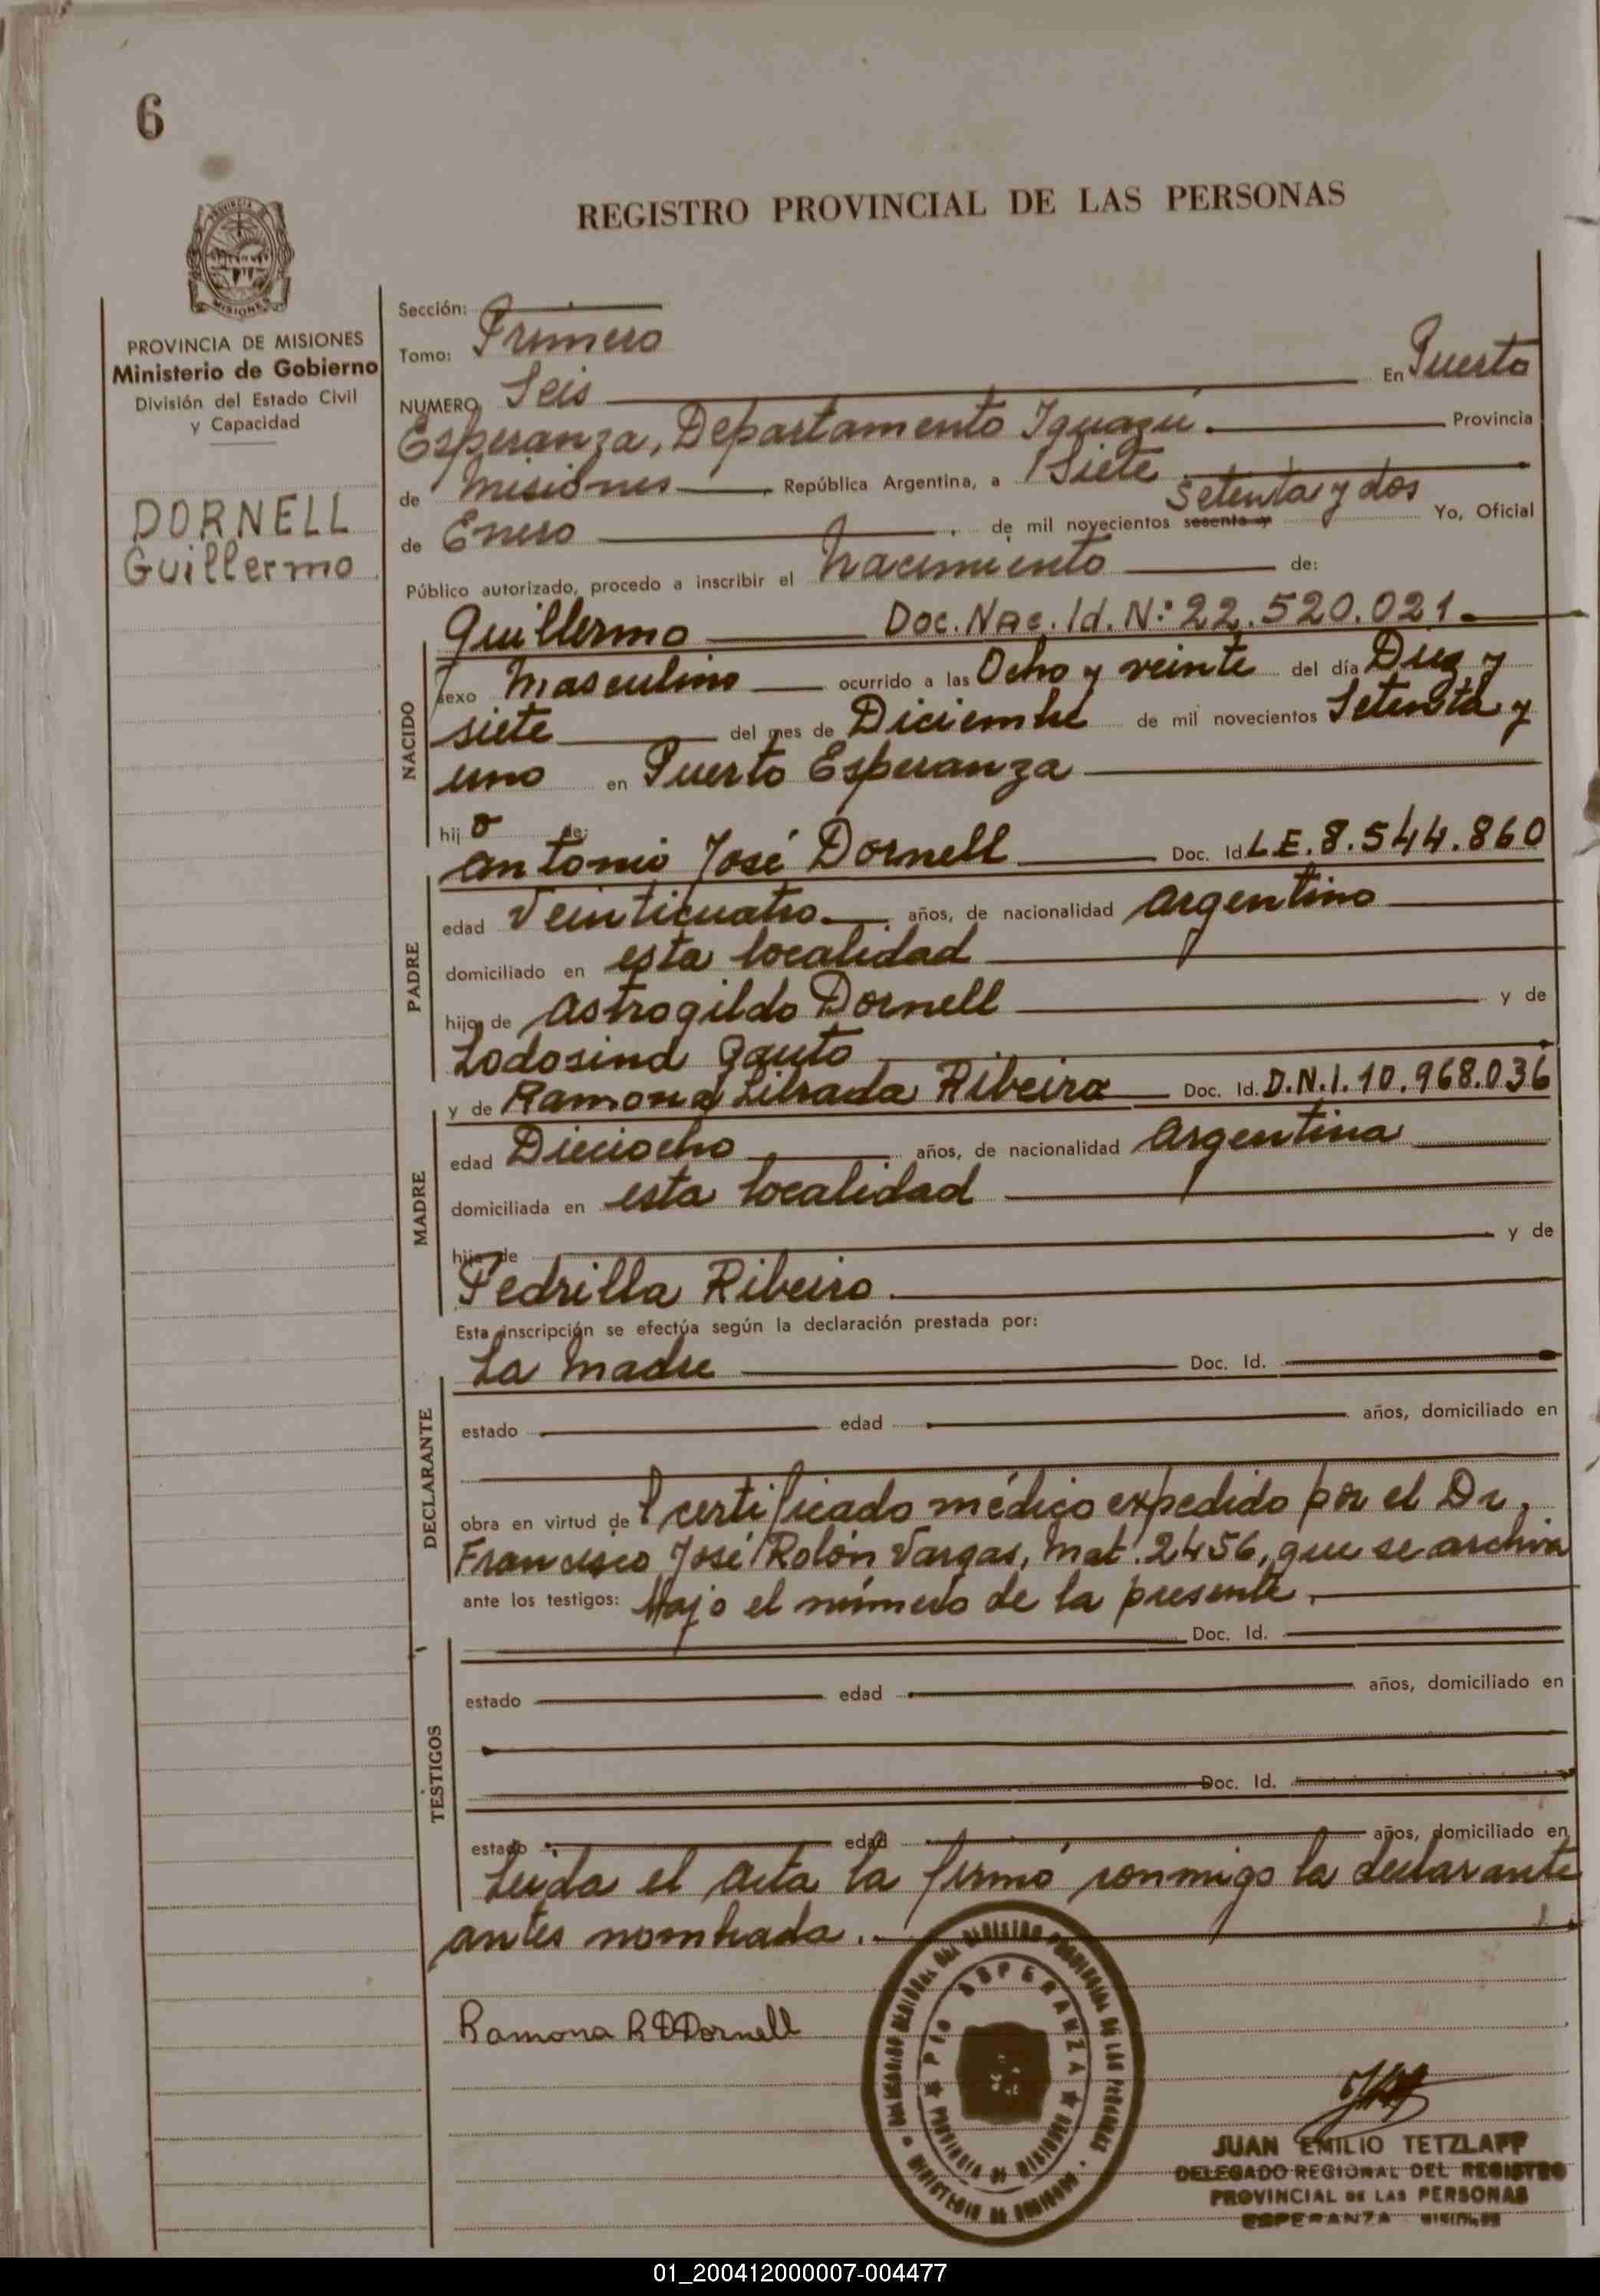 6
REGISTRO PROVINCIAL DE LAS PERSONAS
PROVINCIA DE
MISIONES
PROVINCIA DE MISIONES
Ministerio de Gobierno
División del Estado Civil
y Capacidad
DORNELL
Guillermo
Sección:
Tomo: Primero
NUMERO Seis En Puerto
Esperanza, Departamento Iguazú. Provincia
de Misiones República Argentina, a Siete
de Enero de mil novecientos sesenta y setenta y dos Yo, Oficial
Público autorizado, procedo a inscribir el Nacimiento de:
NACIDO
Guillermo Doc. Nac. Id. N: 22.520.021.
sexo Masculino ocurrido a las Ocho y veinte del día Diez y
siete del mes de Diciembre de mil novecientos Setenta y
uno en Puerto Esperanza
hijo de:
PADRE
Antonio José Dornell Doc. Id. L.E. 8.544.860
edad Veinticuatro años, de nacionalidad Argentino
domiciliado en esta localidad
hijo de Astrogildo Dornell y de
Lodosind Gauto
MADRE
y de Ramona Librada Ribeiro Doc. Id. D.N.I. 10.968.036
edad Dieciocho años, de nacionalidad Argentina
domiciliada en esta localidad
hija de y de
Pedrilla Ribeiro.
Esta inscripción se efectúa según la declaración prestada por:
DECLARANTE
La Madre Doc. Id.
estado edad años, domiciliado en
obra en virtud de certificado médico expedido por el Dr.
Francisco José Rolón Vargas, Mat. 2456, que se archiva
ante los testigos: bajo el número de la presente.
TESTIGOS
Doc. Id.
estado edad años, domiciliado en
Doc. Id.
estado edad años, domiciliado en
Leida el Acta la firmó conmigo la declarante
antes nombrada.
Ramona R D Dornell
DELEGACION REGIONAL DEL REGISTRO PROVINCIAL DE LAS PERSONAS
MINISTERIO DE GOBIERNO
PTO ESPERANZA
PROVINCIA DE MISIONES
JUAN EMILIO TETZLAFF
DELEGADO REGIONAL DEL REGISTRO
PROVINCIAL DE LAS PERSONAS
ESPERANZA - MISIONES
01_200412000007-004477